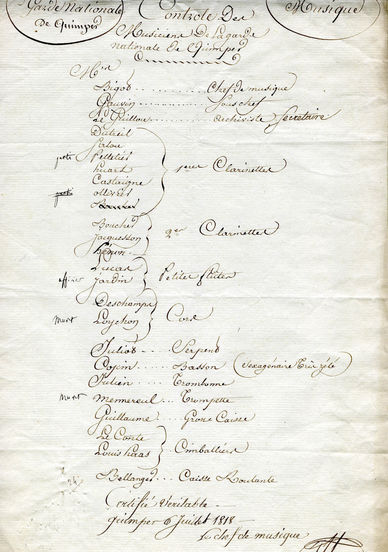 Garde Nationale
de Quimper
Contrôle Des
Musique
Musiciens De La garde
nationale de Quimper
Mrs
Bigot ........ Chef de musique
Gauvin ........ Sous chef
Le Guillou ........ archiviste, Secretaire
Duteil
Pelletier
huart
Castaigne
ollivier
1eres Clarinettes
Bouchet
Jacquesson
2es Clarinettes
Lucas
Jardin
Petites flutes
Deschamps
Mort Loychon
Cors
Julios .... Serpent
Copin ..... Basson (Sexagénaire très zélé)
Julien .... Trombonne
Mort Mennereul ... Trompette
Guillaume ... Grosse Caisse
Le Conte
Louis haas
Cimballiers
Bellanger .... Caisse Roulante
Certifié veritable
quimper 6 Juillet 1818
Le chef de musique